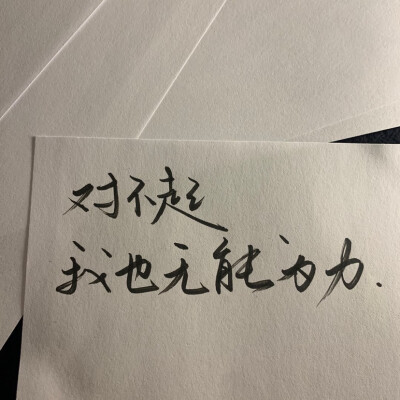 对不起
我也无能为力.